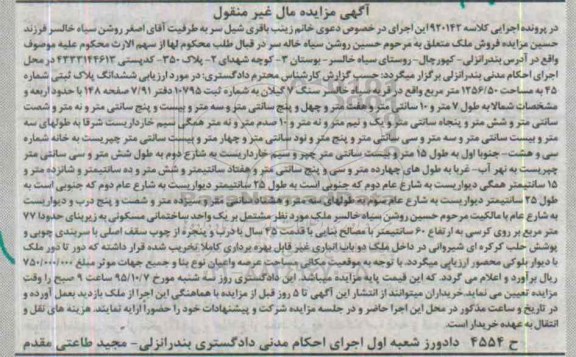 آگهی مزایده مال غیر منقول
در پرونده اجرایی کلاسه ۹۲۰۱۴۲ این اجرای در خصوص دعوی خانم زینب باقری شیل سر به طرفیت آقای اصغر روشن سیاه خالسر فرزند
حسین مزایده فروش ملک متعلق به مرحوم حسین روشن سیاه خاله سر در قبال طلب محکوم لها از سهم الارث محکوم علیه موضوع
واقع در آدرس بندرانزلی- کپورچال- روستای سیاه خالسر- بوستان ۳- کوچه شهدای ۲- پلاک ۳۵۰- کدپستی ۴۳۳۳۱۴۴۶۱۳ در محل
اجرای احکام مدنی بندرانزلی برگزار میگردد: حسب گزارش کارشناس محترم دادگستری: در مورد ارزیابی ششدانگ پلاک ثبتی شماره
۴۵ به مساحت ۱۲۵۶/۵۰ متر مربع واقع در قریه سیاه خالسر سنگ ۷ گیلان به شماره ثبت ۱۰۷۹۵ دفتر ۷/۹۱ صفحه ۱۴۸ با حدود اربعه و
مشخصات شمالا به طول ۷ متر و ۱۰ سانتی متر و هفت متر و چهل و پنج سانتی متر و سه متر و بیست و پنج سانتی متر و نه متر و شصت
سانتی متر و شش متر و پنجاه سانتی متر و یک و نیم متر و نه متر و ۱۰ صدم متر و نه متر همگی سیم خارداریست شرقا به طولهای سه
متر و بیست سانتی متر و سه متر و سی سانتی متر و پنج متر و نود سانتی متر و چهار متر و بیست سانتی متر چپریست به خانه شماره
سی و هشت- جنوبا اول به طول ۱۵ متر و بیست سانتی متر چپر و سیم خارداریست به شارع دوم به طول شش متر و سی سانتی متر
چپریست به نهر آب- غربا به طول های چهارده متر و سی و پنج سانتی متر و هفتاد سانتیمتر و شش متر و ده سانتیمتر و شانزده متر و
۱۵ سانتیمتر همگی دیواریست به شارع عام دوم که جنوبی است به طول ۲۵ سانتیمتر دیواریست به شارع عام دوم که جنوبی است به
طول ۲۵ سانتیمتر دیواریست به شارع عام سوم به طولهای سه متر و هشتاد سانتی متر و سیزده متر و شصت و پنج درب و دیواریست
به شارع عام با مالکیت مرحوم حسین روشن سیاه خالسر ملک مورد نظر مشتمل بر یک واحد ساختمانی مسکونی به زیربنای حدودا ۷۷
متر مربع بر روی کرسی به ارتفاع ۶۰ سانتیمتر با مصالح بنایی با قدمت ۴۵ سال با درب و پنجره از چوب سقف اصلی با سربندی چوبی و
پوشش حلب کرکره ای شیروانی در داخل ملک دو باب انباری غیر قابل بهره برداری کاملا تخریب شده قرار داشته که دور تا دور ملک
با دیوار بلوکی محصور ارزیابی میگردد. با توجه به موقعیت مکانی مساحت عرصه واعیان نوع بنا و جمیع جهات موثر مبلغ ۷۵۰/۰۰۰/۰۰۰
ریال برآورد و اعلام می گردد که این قیمت پایه مزایده میباشد. این دادگستری روز سه شنبه مورخ ۹۵/۱۰/۷ ساعت ۹ صبح را وقت
مزایده تعیین می نماید. خریداران میتوانند از انتشار این آگهی تا ۵ روز قبل از مزایده با هماهنگی این اجرا از ملک بازدید بعمل آورده و
در تاریخ و ساعت مذکور در محل این اجرا حاضر و در جلسه مزایده شرکت و پیشنهادات خود را حضورا ارایه نمایند. هزینه های نقل و
انتقال به عهده خریدار است.
ح ۴۵۵۴ دادورز شعبه اول اجرای احکام مدنی دادگستری بندرانزلی- مجید طاعتی مقدم